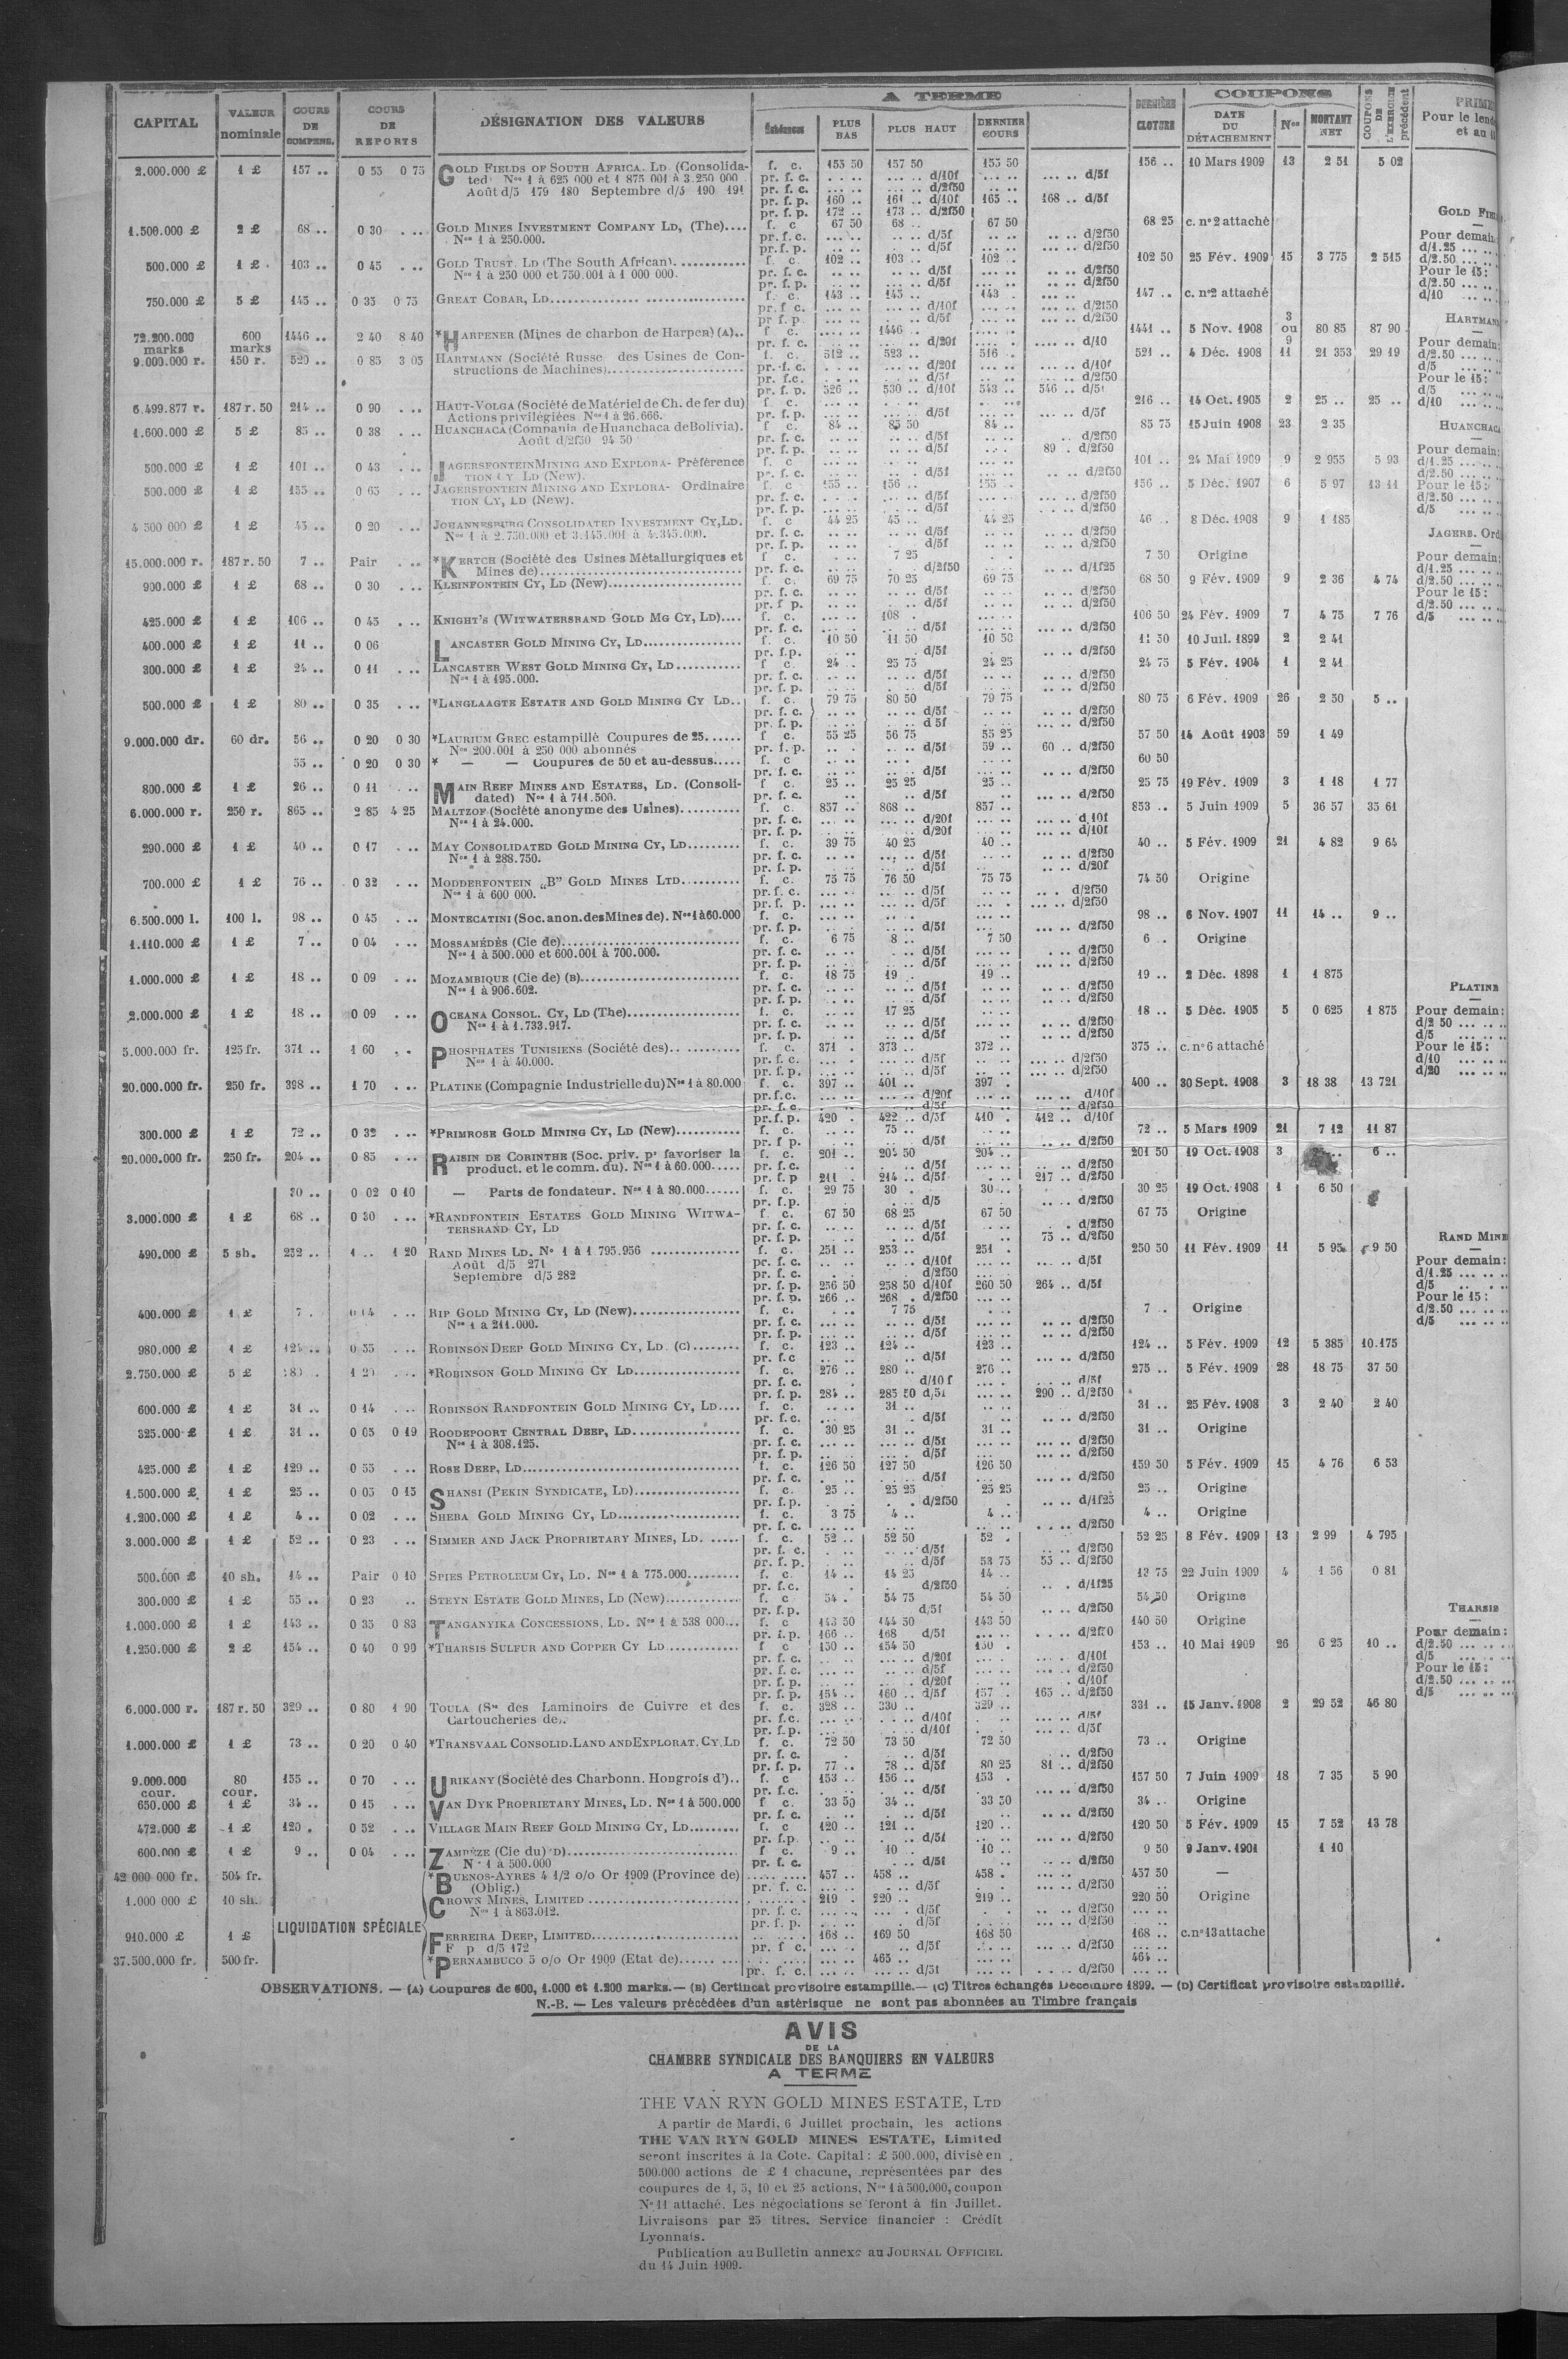 CAPITAL | VALEUR nominale | COURS DE COMPENS. | COURS DE REPORTS | DÉSIGNATION DES VALEURS | A TERME | Échéances | PLUS BAS | PLUS HAUT | DERNIER COURS | DERNIÈRE CLOTURE | COUPONS | DATE DU DÉTACHEMENT | Nos | MONTANT NET | COUPONS DE L'EXERCICE précédent
2.000.000 £ | 1 £ | 157 .. | 0 55 0 75 | GOLD FIELDS OF SOUTH AFRICA. LD (Consolida- | f. c. | 155 50 | 157 50 | 155 50 | 156 .. | 10 Mars 1909 | 13 | 2 51 | 5 02
ted) Nos 1 à 625 000 et 1 875 001 à 3.250 000 | pr. f. c. | .. .. | ... .. d/10f | .. .. | ... .. d/5f
Août d/5 179 180 Septembre d/5 190 191 | pr. f. c. | ... .. | ... .. d/2f50
pr. f. p. | 160 .. | 161 .. d/10f | 165 .. | 168 .. d/5f
pr. f. p. | 172 .. | 173 .. d/2f50
1.500.000 £ | 2 £ | 68 .. | 0 30 . .. | GOLD MINES INVESTMENT COMPANY LD, (The).... | f. c | 67 50 | 68 .. | 67 50 | 68 25 | c. no 2 attaché
Nos 1 à 250.000. | pr. f. c. | d/5f | d/2f50
pr. f. p. | d/5f | d/2f50
500.000 £ | 1 £ | 103 .. | 0 45 . .. | GOLD TRUST, LD (The South African)............ | f. c. | 102 .. | 103 .. | 102 .. | 102 50 | 25 Fév. 1909 | 15 | 3 775 | 2 515
Nos 1 à 250 000 et 750.001 à 1 000 000. | pr. f. c. | d/5f | d/2f50
pr. f. p. | d/5f | d/2f50
750.000 £ | 5 £ | 145 .. | 0 35 0 75 | GREAT COBAR, LD | f. c. | 143 .. | 145 .. | 143 . | 147 .. | c. no 2 attaché
pr. f. c. | d/10f | d/2f50
pr f p. | d/5f | d/2f50
72.200.000 marks | 600 marks | 1446 .. | 2 40 8 40 | *HARPENER (Mines de charbon de Harpen) (A).. | f. c. | ... .. | 1446 .. | 1441 .. | 5 Nov. 1908 | 3 ou 9 | 80 85 | 87 90
pr. f. c. | d/20f | d/10
9.000.000 r. | 150 r. | 520 .. | 0 85 3 05 | HARTMANN (Société Russe des Usines de Con- | f. c. | 512 .. | 523 .. | 516 . | 521 .. | 4 Déc. 1908 | 11 | 21 353 | 29 19
structions de Machines)...................... | pr. f. c. | d/20f | d/10f
pr. f.c. | d/5f | d/2f50
pr. f. p. | 526 .. | 530 .. d/10f | 543 .. | 546 .. d/5f
6.499.877 r. | 187 r. 50 | 214 .. | 0 90 . .. | HAUT-VOLGA (Société de Matériel de Ch. de fer du) | f c. | 216 .. | 14 Oct. 1905 | 2 | 25 .. | 25 ..
Actions privilégiées Nos 1 à 26.666. | pr. f. p. | d/5f | d/5f
1.600.000 £ | 5 £ | 85 .. | 0 38 . .. | HUANCHACA (Compania de Huanchaca de Bolivia). | f c. | 84 .. | 85 50 | 84 .. | 85 75 | 15 Juin 1908 | 23 | 2 35
Août d/2f50 94 50 | pr. f. c. | d/5f | d/2f50
pr. f. p. | d/5f | 89 . d/2f50
500.000 £ | 1 £ | 101 .. | 0 43 . .. | JAGERSFONTEIN MINING AND EXPLORA- Préférence | f. c | 101 .. | 24 Mai 1909 | 9 | 2 955 | 5 93
TION CY LD (New). | pr. f. c. | d/5f | d/2f50
500.000 £ | 1 £ | 155 .. | 0 65 . .. | JAGERSFONTEIN MINING AND EXPLORA- Ordinaire | f. c | 155 .. | 156 .. | 155 .. | 156 .. | 5 Déc. 1907 | 6 | 5 97 | 13 11
TION CY, LD (New). | pr. f. c. | d/5f | d/2f50
pr. f. p. | d/5f | d/2f50
4 500 000 £ | 1 £ | 45 .. | 0 20 . .. | JOHANNESBURG CONSOLIDATED INVESTMENT CY, LD. | f. c | 44 25 | 45 .. | 44 25 | 46 .. | 8 Déc. 1908 | 9 | 1 185
Nos 1 à 2.750.000 et 3.145.001 à 4.345.000. | pr. f. c. | d/5f | d/2f50
pr. f. p. | d/5f | d/2f50
15.000.000 r. | 187 r. 50 | 7 .. | Pair . .. | *KERTCH (Société des Usines Métallurgiques et | f c. | 7 25 | 7 50 | Origine
Mines de)................................ | pr. f. c. | d/2f50 | d/1f25
900.000 £ | 1 £ | 68 .. | 0 30 . .. | KLEINFONTEIN CY, LD (New)...................... | f. c. | 69 75 | 70 25 | 69 75 | 68 50 | 9 Fév. 1909 | 9 | 2 36 | 4 74
pr. f. c. | d/5f | d/2f50
pr. f p. | d/5f | d/2f50
425.000 £ | 1 £ | 106 .. | 0 45 . .. | KNIGHT'S (WITWATERSRAND GOLD MG CY, LD).... | f. c. | 108 . | 106 50 | 24 Fév. 1909 | 7 | 4 75 | 7 76
pr. f. c. | d/5f | d/2f50
400.000 £ | 1 £ | 11 .. | 0 06 | LANCASTER GOLD MINING CY, LD | f. c. | 10 50 | 11 50 | 10 50 | 11 50 | 10 Juil. 1899 | 2 | 2 41
pr. f.p. | d/5f | d/2f50
300.000 £ | 1 £ | 24 .. | 0 11 . .. | LANCASTER WEST GOLD MINING CY, LD | f c. | 24 .. | 25 75 | 24 25 | 24 75 | 5 Fév. 1904 | 1 | 2 41
Nos 1 à 195.000. | pr. f. c. | d/5f | d/2f50
pr. f. p. | d/5f | d/2f50
500.000 £ | 1 £ | 80 .. | 0 35 . .. | *LANGLAAGTE ESTATE AND GOLD MINING CY LD.. | f. c. | 79 75 | 80 50 | 79 75 | 80 75 | 6 Fév. 1909 | 26 | 2 50 | 5 ..
pr. f. c. | d/5f | d/2f50
pr. f. p. | d 5f | d/2f50
9.000.000 dr. | 60 dr. | 56 .. | 0 20 0 30 | *LAURIUM GREC estampillé Coupures de 25...... | f c. | 55 25 | 56 75 | 55 25 | 57 50 | 14 Août 1903 | 59 | 1 49
Nos 200.001 à 250 000 abonnés | pr. f. p. | d/5f | 59 .. | 60 .. d/2f50
55 .. | 0 20 0 30 | * — — Coupures de 50 et au-dessus..... | f. c | 60 50
pr. f. c. | d/5f | d/2f50
800.000 £ | 1 £ | 26 .. | 0 11 . .. | MAIN REEF MINES AND ESTATES, LD. (Consoli- | f c. | 25 .. | 25 25 | 25 .. | 25 75 | 19 Fév. 1909 | 3 | 1 18 | 1 77
dated) Nos 1 à 741.500. | pr. f. c. | d/5f | d/2f50
6.000.000 r. | 250 r. | 865 .. | 2 85 4 25 | MALTZOF (Société anonyme des Usines).......... | f. c. | 857 .. | 868 .. | 857 .. | 853 .. | 5 Juin 1909 | 5 | 36 57 | 35 61
Nos 1 à 24.000. | pr. f. c. | d/20f | d 10f
pr. f. p. | d/20f | d/10f
290.000 £ | 1 £ | 40 .. | 0 17 . .. | MAY CONSOLIDATED GOLD MINING CY, LD......... | f. c. | 39 75 | 40 25 | 40 .. | 40 .. | 5 Fév. 1909 | 21 | 4 82 | 9 64
Nos 1 à 288.750. | pr. f. c. | d/5f | d/2f50
pr. f. p. | d/5f | d/20f
700.000 £ | 1 £ | 76 .. | 0 32 . .. | MODDERFONTEIN „B” GOLD MINES LTD.......... | f. c. | 75 75 | 76 50 | 75 75 | 74 50 | Origine
Nos 1 à 600 000. | pr. f. c. | d/5f | d/2f50
pr. f. p. | d/5f | d/2f50
6.500.000 l. | 100 l. | 98 .. | 0 45 . .. | MONTECATINI (Soc. anon. des Mines de). Nos 1 à 60.000 | f. c. | 98 .. | 6 Nov. 1907 | 11 | 14 .. | 9 ..
pr. f. p. | d/2f50
1.110.000 £ | 1 £ | 7 .. | 0 04 . .. | MOSSAMÉDÈS (Cie de) | f. c. | 6 75 | 8 .. | 7 50 | 6 .. | Origine
Nos 1 à 500.000 et 600.001 à 700.000. | pr. f. c. | d/5f | d/2f50
pr. f. p. | d/5f | d/2f50
1.000.000 £ | 1 £ | 18 .. | 0 09 . .. | MOZAMBIQUE (Cie de) (B) | f. c. | 18 75 | 19 . | 19 .. | 19 .. | 2 Déc. 1898 | 1 | 1 875
Nos 1 à 906.602. | pr. f. c. | d/5f | d/2f50
pr. f. p. | d/5f | d/2f50
2.000.000 £ | 1 £ | 18 .. | 0 09 . .. | OCEANA CONSOL. CY, LD (The) | f. c. | 17 25 | 18 .. | 5 Déc. 1905 | 5 | 0 625 | 1 875
Nos 1 à 1.733.917. | pr. f. c. | d/5f | d/2f50
pr. f. p. | d/5f | d/2f50
5.000.000 fr. | 125 fr. | 371 .. | 1 60 .. | PHOSPHATES TUNISIENS (Société des) | f. c. | 371 . | 373 .. | 372 .. | 375 .. | c. no 6 attaché
Nos 1 à 40.000. | pr. f. c. | d/5f | d/2f50
pr. f. p. | d/5f | d/2f50
20.000.000 fr. | 250 fr. | 398 .. | 1 70 . .. | PLATINE (Compagnie Industrielle du) Nos 1 à 80.000 | f. c. | 397 .. | 401 .. | 397 . | 400 .. | 30 Sept. 1908 | 3 | 18 38 | 13 721
pr. f. c. | d/20f | d/10f
pr. f. c. | d/5f | d/2f50
pr. f. p. | 420 . | 422 .. d/5f | 410 . | 412 .. d/10f
300.000 £ | 1 £ | 72 .. | 0 32 . .. | *PRIMROSE GOLD MINING CY, LD (New)........... | f. c. | 75 .. | 72 .. | 5 Mars 1909 | 21 | 7 12 | 11 87
pr. f p. | d/5f | d/2f50
20.000.000 fr. | 250 fr. | 204 .. | 0 85 . .. | RAISIN DE CORINTHE (Soc. priv. pr favoriser la | f. c. | 201 .. | 204 50 | 204 .. | 201 50 | 19 Oct. 1908 | 3 | 6 ..
product. et le comm. du). Nos 1 à 60.000..... | pr. f. c. | d/5f | d/2f50
pr. f. p | 211 . | 214 .. d/5f | 217 .. d/2f50
30 .. | 0 02 0 10 | — Parts de fondateur. Nos 1 à 80.000...... | f. c. | 29 75 | 30 . | 30 .. | 30 25 | 19 Oct. 1908 | 1 | 6 50
pr. f.p. | d/5 | d/2f50
3.000.000 £ | 1 £ | 68 .. | 0 30 . .. | *RANDFONTEIN ESTATES GOLD MINING WITWA- | f. c. | 67 50 | 68 25 | 67 50 | 67 75 | Origine
TERSRAND CY, LD | pr. f. c. | d/5f | d/2f50
pr. f. p. | d/5f | 75 .. d/2f50
490.000 £ | 5 sh. | 252 .. | 1 .. 1 20 | RAND MINES LD. No 1 à 1 795.956 | f. c. | 251 .. | 253 .. | 251 . | 250 50 | 11 Fév. 1909 | 11 | 5 95 | 9 50
Août d/5 271 | pr. f. c. | d/10f | d/5f
Septembre d/5 282 | pr. f. c. | d/2f50
pr. f. p. | 256 50 | 258 50 d/10f | 260 50 | 264 .. d/5f
pr. f. p. | 266 .. | 268 . d/2f50
400.000 £ | 1 £ | 7 . | 0 04 . .. | RIP GOLD MINING CY, LD (New) | f. c. | 7 75 | 7 .. | Origine
Nos 1 à 211.000. | pr. f. c. | d/5f | d/2f50
pr. f. p. | d/5f | d/2f50
980.000 £ | 1 £ | 124 .. | 0 55 . .. | ROBINSON DEEP GOLD MINING CY, LD. (C) | f. c. | 123 .. | 124 .. | 123 .. | 124 .. | 5 Fév. 1909 | 12 | 5 385 | 10.175
pr. f.c | d/5f | d/2f50
2.750.000 £ | 5 £ | 280 . | 1 20 . .. | *ROBINSON GOLD MINING CY LD | f. c. | 276 .. | 280 .. | 276 .. | 275 .. | 5 Fév. 1909 | 28 | 18 75 | 37 50
pr. f. c. | d/10 f | d/5f
pr. f. p. | 284 .. | 285 50 d/5f | 290 .. d/2f50
600.000 £ | 1 £ | 31 .. | 0 14 . .. | ROBINSON RANDFONTEIN GOLD MINING CY, LD.... | f. c. | 31 .. | 31 .. | 25 Fév. 1908 | 3 | 2 40 | 2 40
pr. f. c. | d/5f | d/2f50
325.000 £ | 1 £ | 31 .. | 0 05 0 19 | ROODEPOORT CENTRAL DEEP, LD | f. c. | 30 25 | 31 .. | 31 .. | 31 .. | Origine
Nos 1 à 308.125. | pr. f. c. | d/5f | d/2f50
pr. f. p. | d/5f | d/2f50
425.000 £ | 1 £ | 129 .. | 0 55 . .. | ROSE DEEP, LD | f. c. | 126 50 | 127 50 | 126 50 | 159 50 | 5 Fév. 1909 | 15 | 4 76 | 6 53
pr. f. c. | d/5f | d/2f50
1.500.000 £ | 1 £ | 25 .. | 0 05 0 15 | SHANSI (PEKIN SYNDICATE, LD) | f. c. | 25 .. | 25 25 | 25 25 | 25 .. | Origine
pr. f.p. | d/2f50 | d/1f25
1.200.000 £ | 1 £ | 4 .. | 0 02 . .. | SHEBA GOLD MINING CY, LD | f. c. | 3 75 | 4 .. | 4 .. | 4 .. | Origine
pr. f. c. | d/2f50
3.000.000 £ | 1 £ | 52 .. | 0 23 . .. | SIMMER AND JACK PROPRIETARY MINES, LD. | f. c. | 52 .. | 52 50 | 52 . | 52 25 | 8 Fév. 1909 | 13 | 2 99 | 4 795
pr. f. c. | d/5f | d/2f50
pr. f. p. | d/5f | 53 75 | 55 .. d/2f50
500.000 £ | 10 sh. | 14 .. | Pair 0 10 | SPIES PETROLEUM CY, LD. Nos 1 à 775.000......... | f. c. | 14 .. | 14 25 | 14 .. | 13 75 | 22 Juin 1909 | 4 | 1 56 | 0 81
pr. f.c. | d/2f50 | d/1f25
300.000 £ | 1 £ | 55 .. | 0 23 .. | STEYN ESTATE GOLD MINES, LD (New) | f. c | 54 . | 54 75 | 54 50 | 54 50 | Origine
pr. f.p. | d/5f | d/2f50
1.000.000 £ | 1 £ | 143 .. | 0 35 0 83 | TANGANYIKA CONCESSIONS, LD. Nos 1 à 538 000... | f. c | 143 50 | 144 50 | 143 50 | 140 50 | Origine
pr. f. p. | 166 .. | 168 d/5f | d/2f50
1.250.000 £ | 2 £ | 154 .. | 0 40 0 90 | *THARSIS SULFUR AND COPPER CY LD | f c | 150 .. | 154 50 | 150 . | 153 .. | 10 Mai 1909 | 26 | 6 25 | 10 ..
pr. f. c. | d/20f | d/10f
pr. f. c. | d/5f | d/2f50
pr. f. p. | d/20f | d/10f
pr. f. p. | 154 .. | 160 .. d/5f | 157 . | 165 .. d/2f50
6.000.000 r. | 187 r. 50 | 329 .. | 0 80 1 90 | TOULA (Sté des Laminoirs de Cuivre et des | f. c. | 328 .. | 330 .. | 329 .. | 331 .. | 15 Janv. 1908 | 2 | 29 52 | 46 80
Cartoucheries de). | pr. f.c. | d/10f | d/5f
pr. f. p. | d/10f | d/5f
1.000.000 £ | 1 £ | 73 .. | 0 20 0 40 | *TRANSVAAL CONSOLID. LAND AND EXPLORAT. CY. LD | f. c. | 72 50 | 73 50 | 72 50 | 73 .. | Origine
pr. f. c. | d/5f | d/2f50
pr. f. p. | 77 .. | 78 .. d/5f | 80 25 | 81 .. d/2f50
9.000.000 cour. | 80 cour. | 155 .. | 0 70 . .. | URIKANY (Société des Charbonn. Hongrois d').. | f. c | 153 .. | 156 .. | 153 . | 157 50 | 7 Juin 1909 | 18 | 7 35 | 5 90
pr. f.c. | d/5f | d/2f50
650.000 £ | 1 £ | 34 .. | 0 15 . .. | VAN DYK PROPRIETARY MINES, LD. Nos 1 à 500.000 | f c. | 33 50 | 34 .. | 33 50 | 34 .. | Origine
pr. f. c. | d/5f | d/2f50
472.000 £ | 1 £ | 120 . | 0 52 . .. | VILLAGE MAIN REEF GOLD MINING CY, LD......... | f. c | 120 .. | 121 .. | 120 .. | 120 50 | 5 Fév. 1909 | 15 | 7 52 | 13 78
pr. f.p. | d/5f | d/2f50
600.000 £ | 1 £ | 9 .. | 0 04 . .. | ZAMBÈZE (Cie du) (D) | f c. | 9 .. | 10 .. | 10 .. | 9 50 | 9 Janv. 1901 | 1 10
Nos 1 à 500.000 | pr. f. c. | d/5f | d/2f50
42 000 000 fr. | 504 fr. | *BUENOS-AYRES 4 1/2 o/o Or 1909 (Province de) | 457 .. | 458 .. | 458 . | 457 50 | —
(Oblig.) | pr. f. c. | d/5f | d/2f50
1.000.000 £ | 10 sh. | CROWN MINES, LIMITED | 219 . | 220 .. | 219 .. | 220 50 | Origine
Nos 1 à 863.012. | pr. f. c. | d/5f | d/2f50
LIQUIDATION SPÉCIALE | pr. f. p. | d/5f | d/2f50
910.000 £ | 1 £ | FERREIRA DEEP, LIMITED | 168 .. | 169 50 | 168 50 | 168 .. | c. no 13 attache
F p d/5 172 | pr. f c. | d/5f | d/2f50
37.500.000 fr. | 500 fr. | *PERNAMBUCO 5 o/o Or 1909 (Etat de) | 465 .. | 464 ..
pr. f. c. | d/5f | d/2f50
PRIME
Pour le lend
et au
GOLD FIE
Pour demain
d/1.25 ... ..
d/2.50 ... ..
Pour le 15:
d/2.50 ... ..
d/10 ... ..
HARTMANN
Pour demain:
d/2.50 ... ..
d/5 ... ..
Pour le 15:
d/5 ... ..
d/10 ... ..
HUANCHACA
Pour demain:
d/1.25 ... ..
d/2.50 ... ..
Pour le 15:
d/2.50 ... ..
d/5 ... ..
JAGERS. Ord
Pour demain:
d/1.25 ... ..
d/2.50 ... ..
Pour le 15:
d/2.50 ... ..
d/5 ... ..
PLATINE
Pour demain:
d/2 50 ... ..
d/5 ... ..
Pour le 15:
d/10 ... ..
d/20 ... ..
RAND MINE
Pour demain:
d/1.25 ... ..
d/5 ... ..
Pour le 15:
d/2.50 ... ..
d/5 ... ..
THARSIS
Pour demain:
d/2.50 ... ..
d/5 ... ..
Pour le 15:
d/2.50 ... ..
d/5 ... ..
OBSERVATIONS. — (A) Coupures de 600, 1.000 et 1.200 marks. — (B) Certificat provisoire estampillé. — (C) Titres échangés Décembre 1899. — (D) Certificat provisoire estampillé.
N.-B. — Les valeurs précédées d'un astérisque ne sont pas abonnées au Timbre français
AVIS
DE LA
CHAMBRE SYNDICALE DES BANQUIERS EN VALEURS
A TERME
THE VAN RYN GOLD MINES ESTATE, LTD
A partir de Mardi, 6 Juillet prochain, les actions
THE VAN RYN GOLD MINES ESTATE, Limited
seront inscrites à la Cote. Capital : £ 500.000, divisé en
500.000 actions de £ 1 chacune, représentées par des
coupures de 1, 5, 10 et 25 actions, Nos 1 à 500.000, coupon
No 11 attaché. Les négociations se feront à fin Juillet.
Livraisons par 25 titres. Service financier : Crédit
Lyonnais.
Publication au Bulletin annexe au JOURNAL OFFICIEL
du 14 Juin 1909.